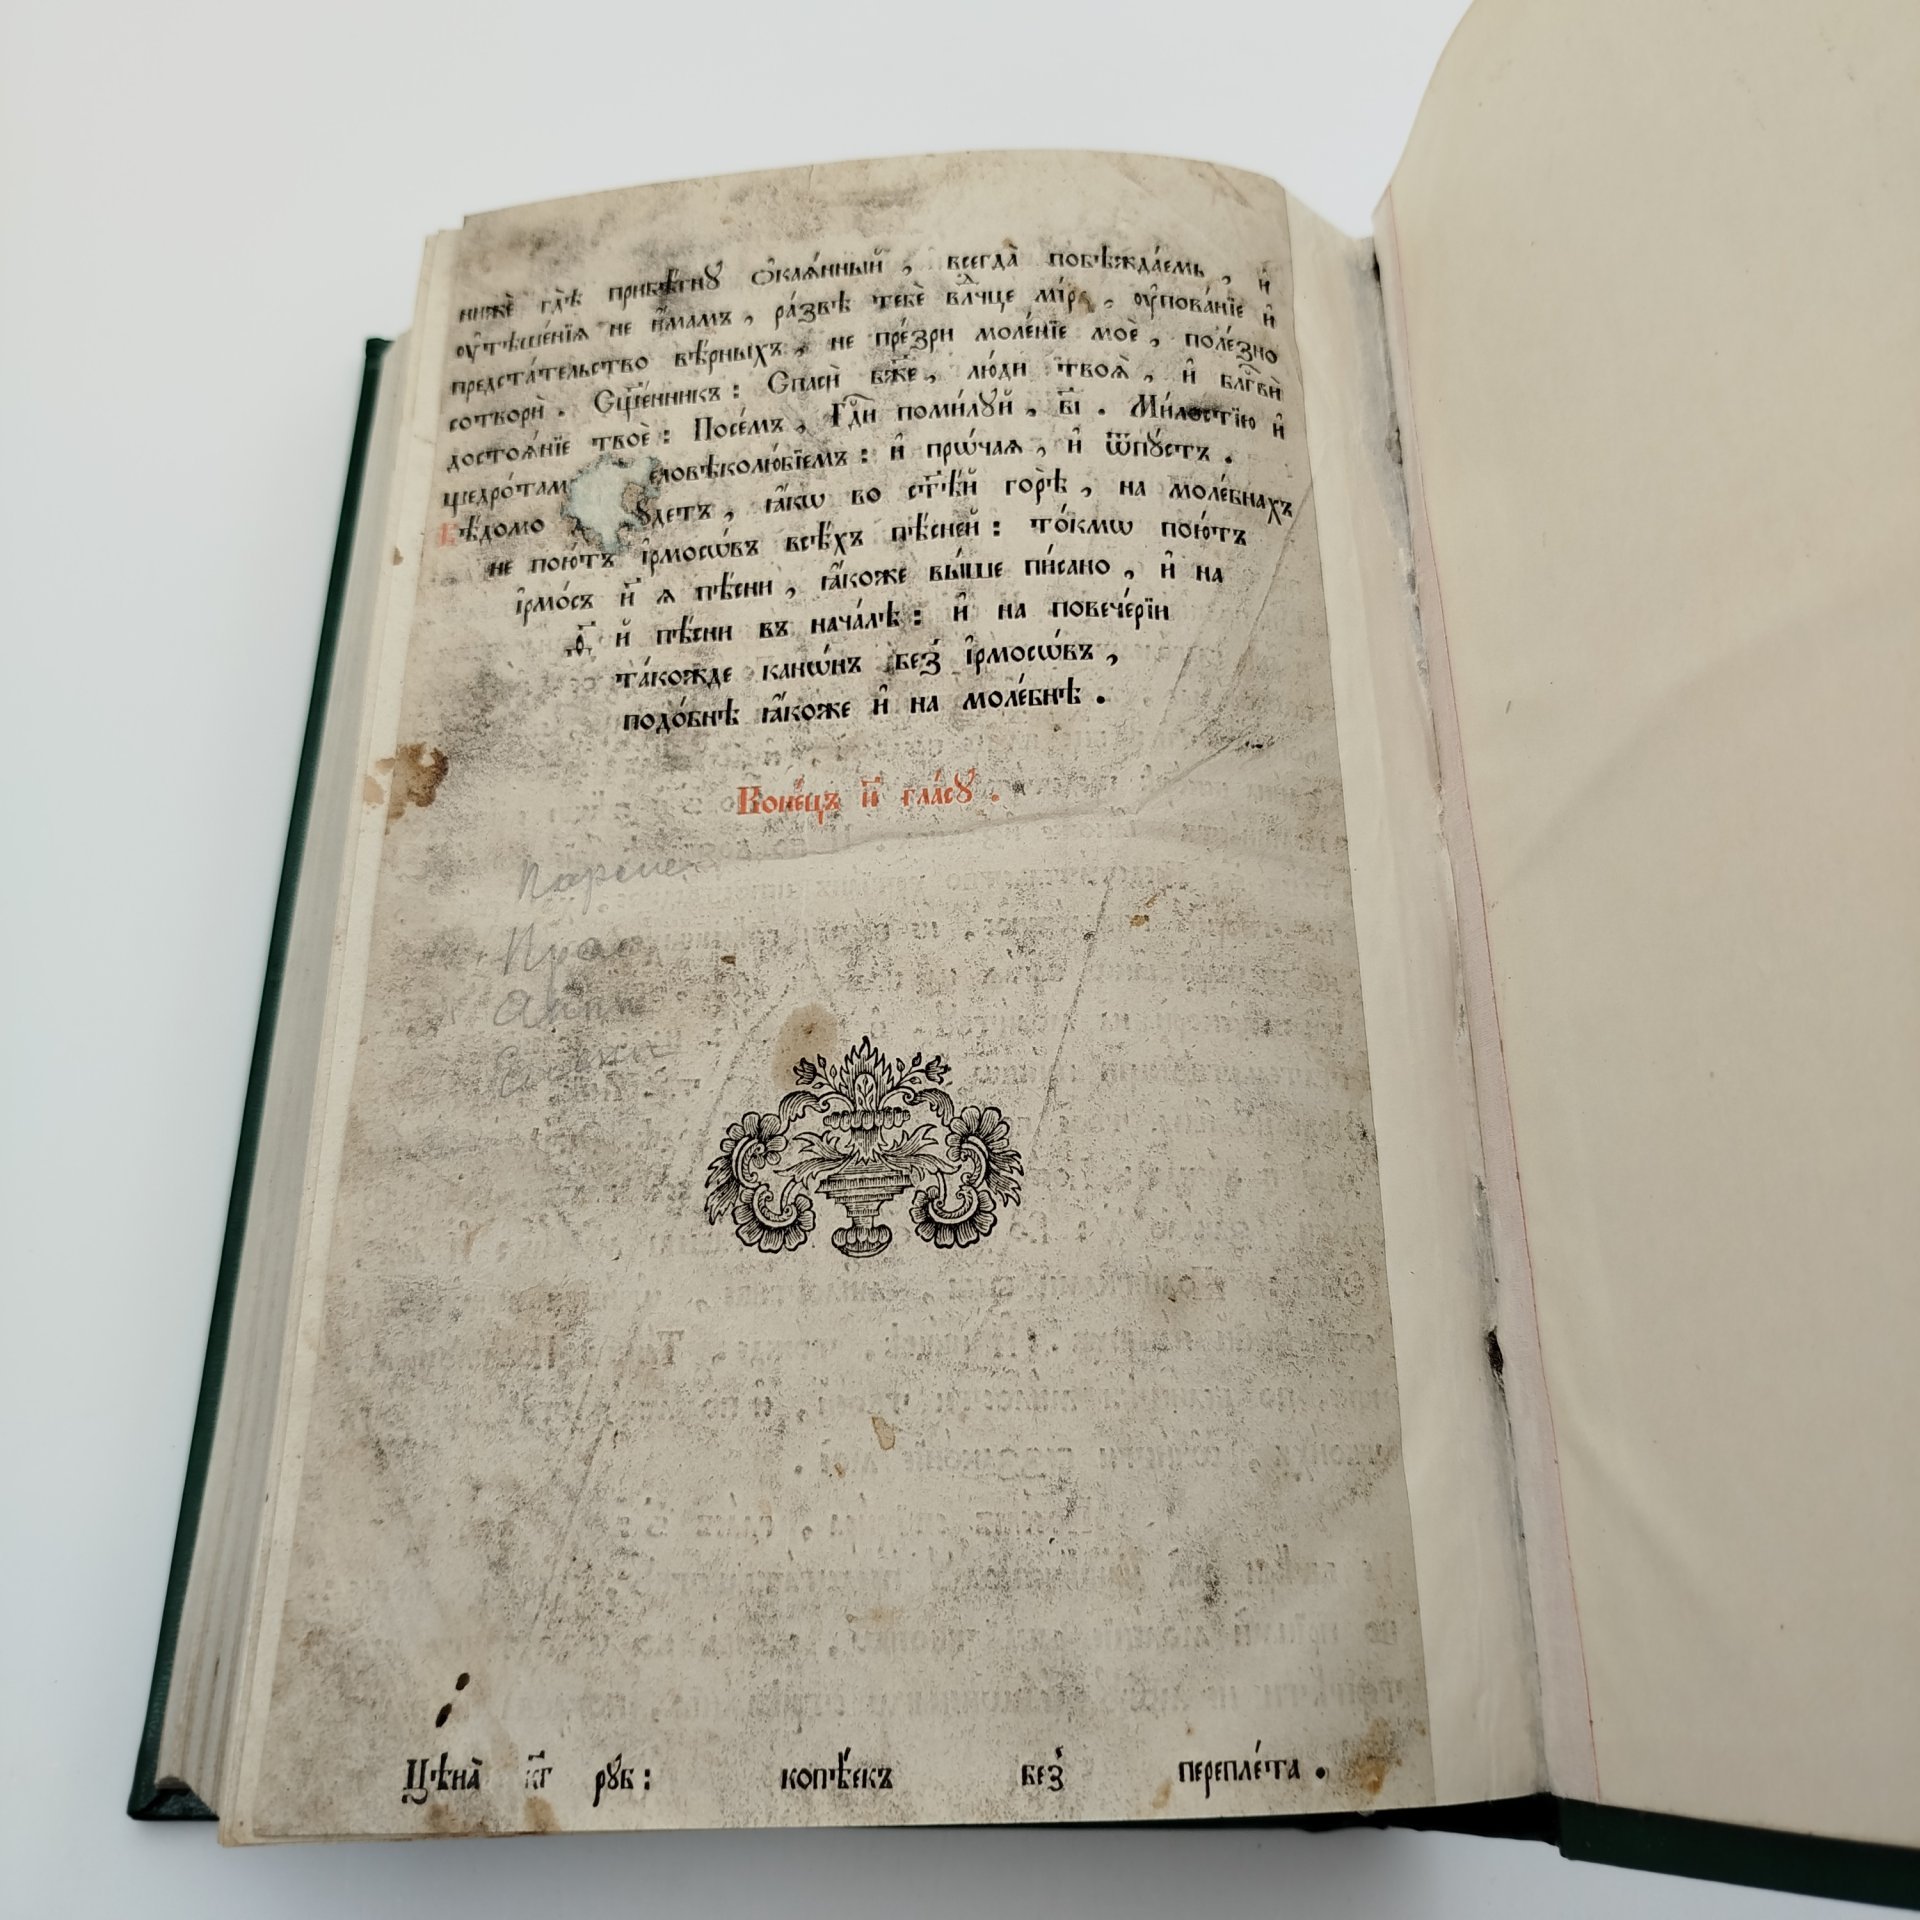 нижѐ гдѣ̀ прибѣ́гнꙋ ѻ҆каѧ́нный , всегда̀ побѣжда́емь , и҆
ᲂу҆тѣше́нїѧ не и҆́мамъ , ра́звѣ тебѐ влⷣчце мі́ра , ᲂу҆пова́нїе и҆
предста́тельство вѣ́рныхъ , не пре́зри моле́нїе моѐ , поле́зно
сотворѝ . Сщ҃е́нникъ : Спасѝ бж҃е , лю́ди твоѧ̑ , и҆ блг҇вѝ
достоѧ́нїе твоѐ : Посе́мъ , Гдⷭ҇и поми́лꙋй , в҃і . Ми́лостїю и҆
щедро́там еловѣколю́бїемъ : и҆ прѡ́чаѧ , и҆ ѿпꙋ́стъ .
Вѣ́домо ꙋ́детъ , ꙗ҆́кѡ во ст҃ѣ́й горѣ̀ , на моле́бнахъ
не пою́тъ і҆рмосѡ́въ всѣ́хъ пѣ́сней : то́кмѡ пою́тъ
і҆рмо́съ и҃ ѧ пѣ́сни , ꙗ҆́коже вы́ше пи́сано , и҆ на
ѳ҃ й пѣ́сни въ нача́лѣ : и҆ на повече́рїи
та́кожде канѡ́нъ без̾ і҆рмосѡ́въ ,
подо́бнѣ ꙗ҆́коже и҆ на моле́бнѣ .
Коне́цъ и҃ гла́сꙋ .
Анны
Цѣна̀ к҃г рꙋб : копѣ́екъ без̾ перепле́та .